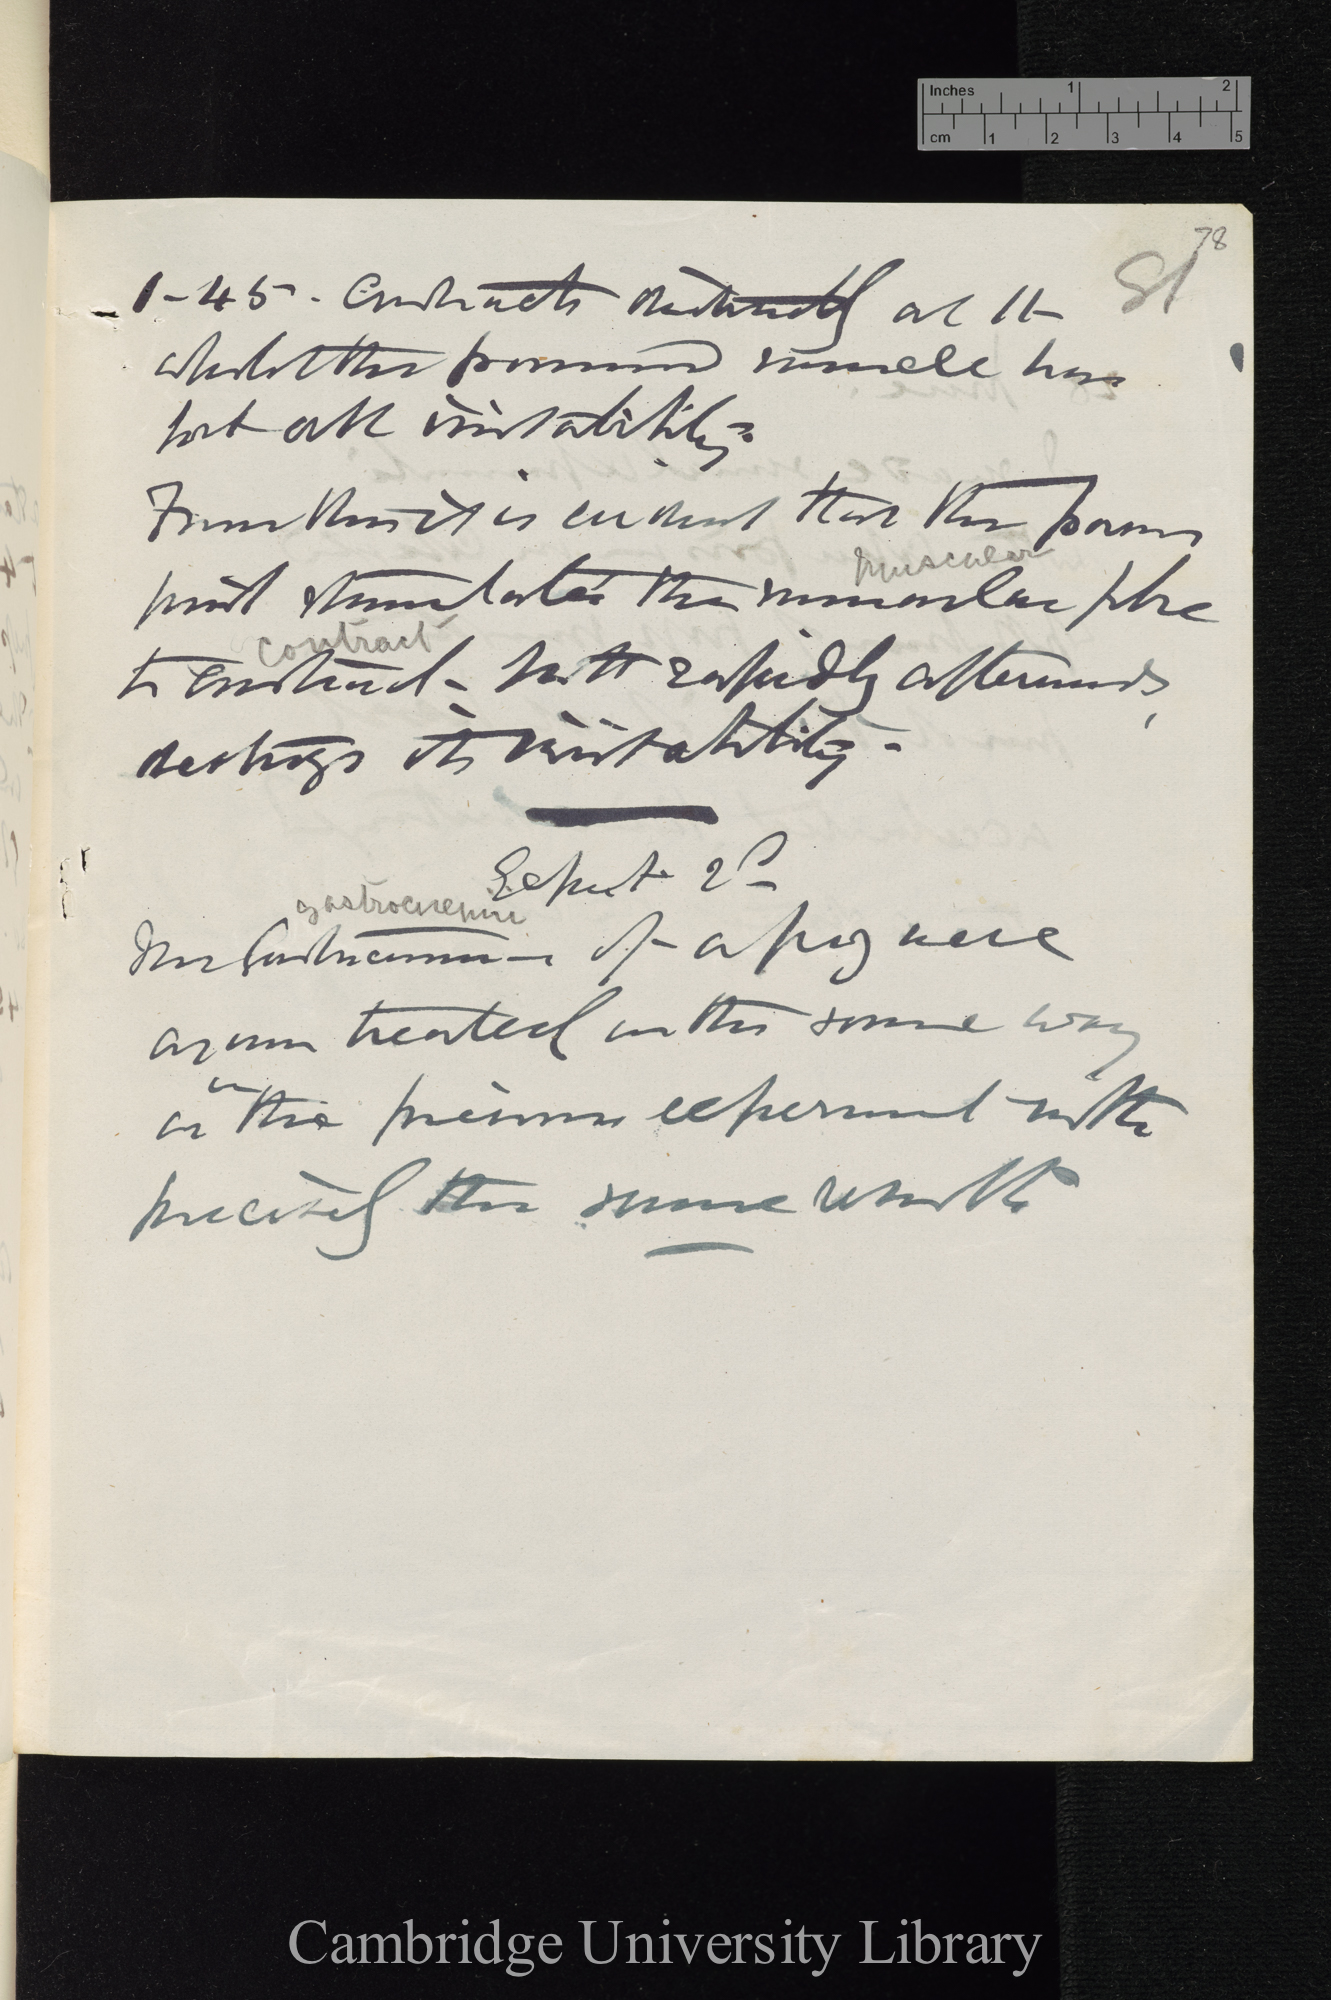 Inches 1 2
cm 1 2 3 4 5
78
81
1-45. Contracts distinctly at 11
whilst the poisoned muscle has
lost all irritability.
From this it is evident that the poison
muscular
first stimulates the muscular fibre
contract
to contract - but rapidly afterwards,
destroys its irritability.
Expert. 2d
gastrocnemii
The Gastrocnemii of a frog were
again treated in the same way
as in the previous experiment with
precisely the same result
Cambridge University Library